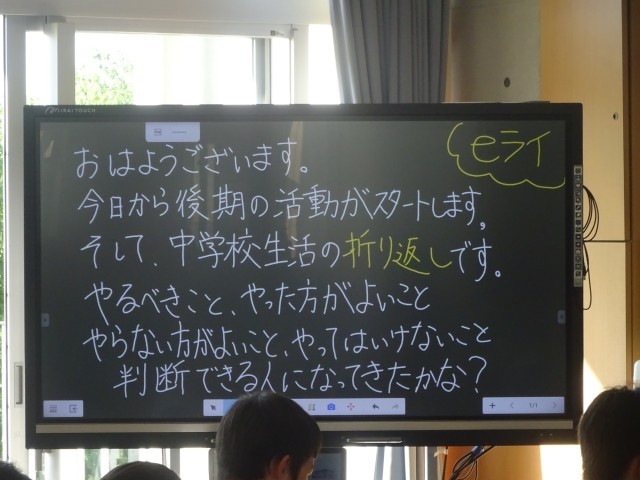 MIRAI TOUCH
eライ
おはようございます。
今日から後期の活動がスタートします。
そして、中学校生活の折り返しです。
やるべきこと、やった方がよいこと
やらない方がよいこと、やってはいけないこと
判断できる人になってきたかな?
1/1